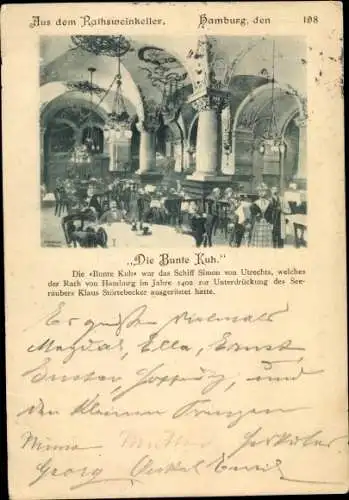 Aus dem Rathsweinkeller, Hamburg, den 198
„Die Bunte Kuh."
Die «Bunte Kuh» war das Schiff Simon von Utrechts, welches
der Rath von Hamburg im Jahre 1402 zur Unterdrückung des See-
räubers Klaus Störtebecker ausgerüstet hatte.
Es grüßt vielmals
Magda, Ella, Ernst
Gustav, und
den kleinen Prinzen
Minna Mutter
Georg Onkel Emil